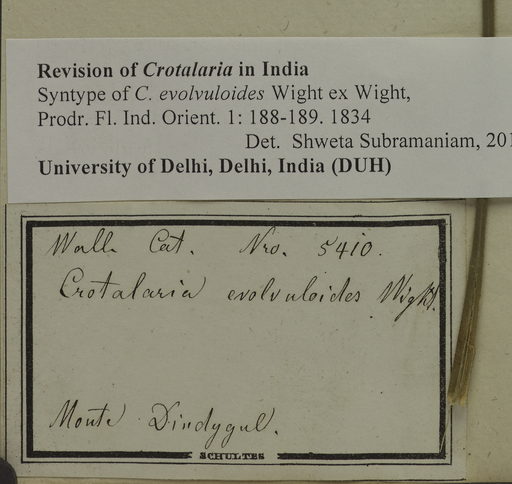 Revision of Crotalaria in India
Syntype of C. evolvuloides Wight ex Wight,
Prodr. Fl. Ind. Orient. 1: 188-189. 1834
Det. Shweta Subramaniam, 201
University of Delhi, Delhi, India (DUH)
Wall. Cat. Nro. 5410.
Crotalaria evolvuloides Wight.
Monte Dindygul.
SCHULTES